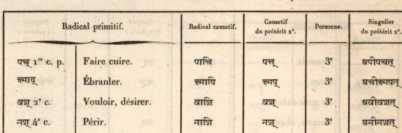 Radical primitif. Radical causatif. Causatif du prétérit 2ᵉ. Personne. Singulier du prétérit 2ᵉ.
पच् 1ʳᵉ c. p. Faire cuire. पाचि पच् 3ᵉ अपीपचत्
क्ष्माय् Ébranler. क्ष्मापि क्ष्मप् 3ᵉ
वश् 2ᵉ c. Vouloir, désirer. वाशि वश् 3ᵉ अवीवशत्
नश् 4ᵉ c. Périr. नाशि नश् 3ᵉ अनीनशत्